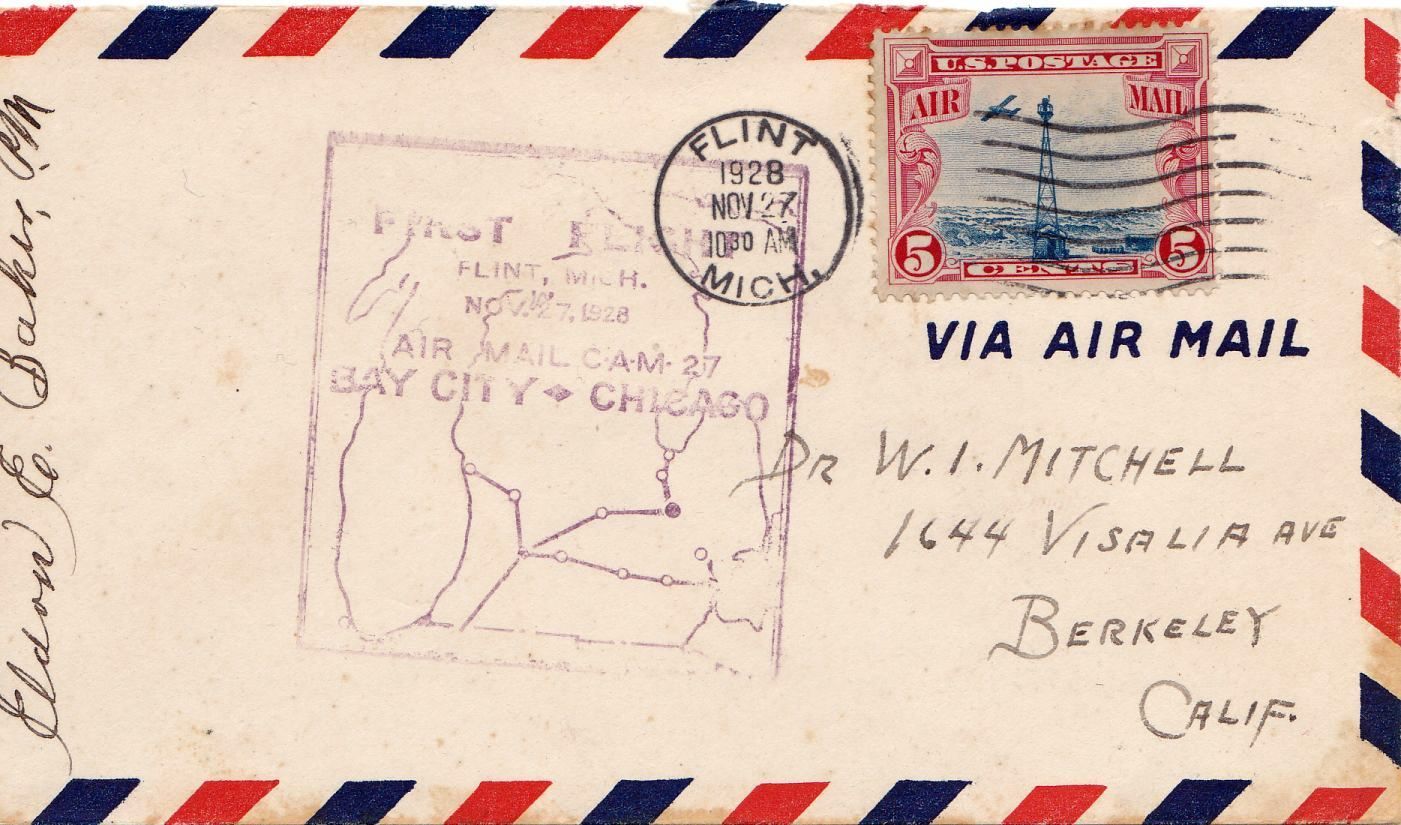 U.S. POSTAGE
AIR MAIL
5 5
CENTS
FLINT
1928
NOV 27
10 30 AM
MICH.
FIRST FLIGHT
FLINT, MICH.
NOV. 27, 1928
AIR MAIL C·A·M·27
BAY CITY ◆ CHICAGO
VIA AIR MAIL
DR W. I. MITCHELL
1644 VISALIA AVE
BERKELEY
CALIF.
Eldon E. Baker, PM